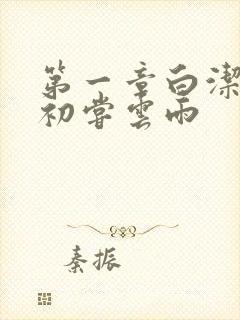 第一章白潔
初嘗雲雨
秦振